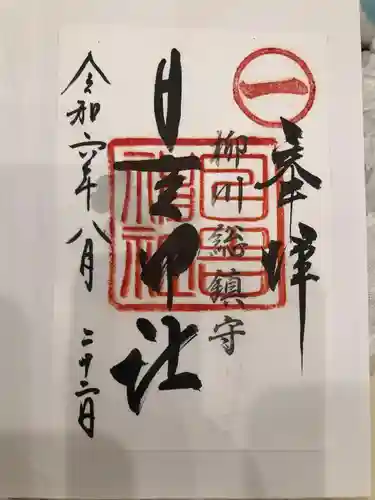 奉拝
㊀
柳川総鎮守
日吉神社
日吉神社
令和六年八月二十二日